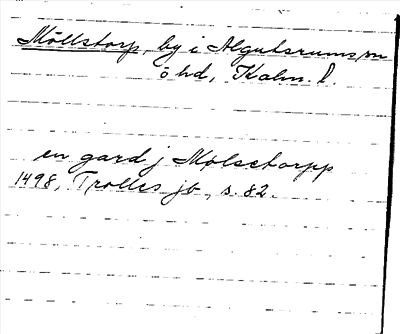 Möllstorp, by i Algutsrums sn
ö hd, Kalm. l.
en gard j Mølsetorpp
1498, Trolles jb, s. 82.